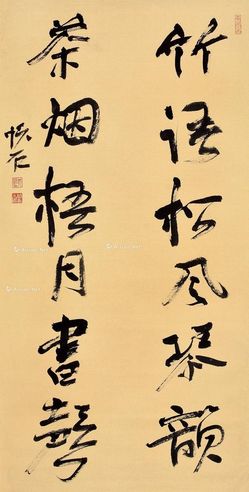 竹语松风琴韵
茶烟梧月书声